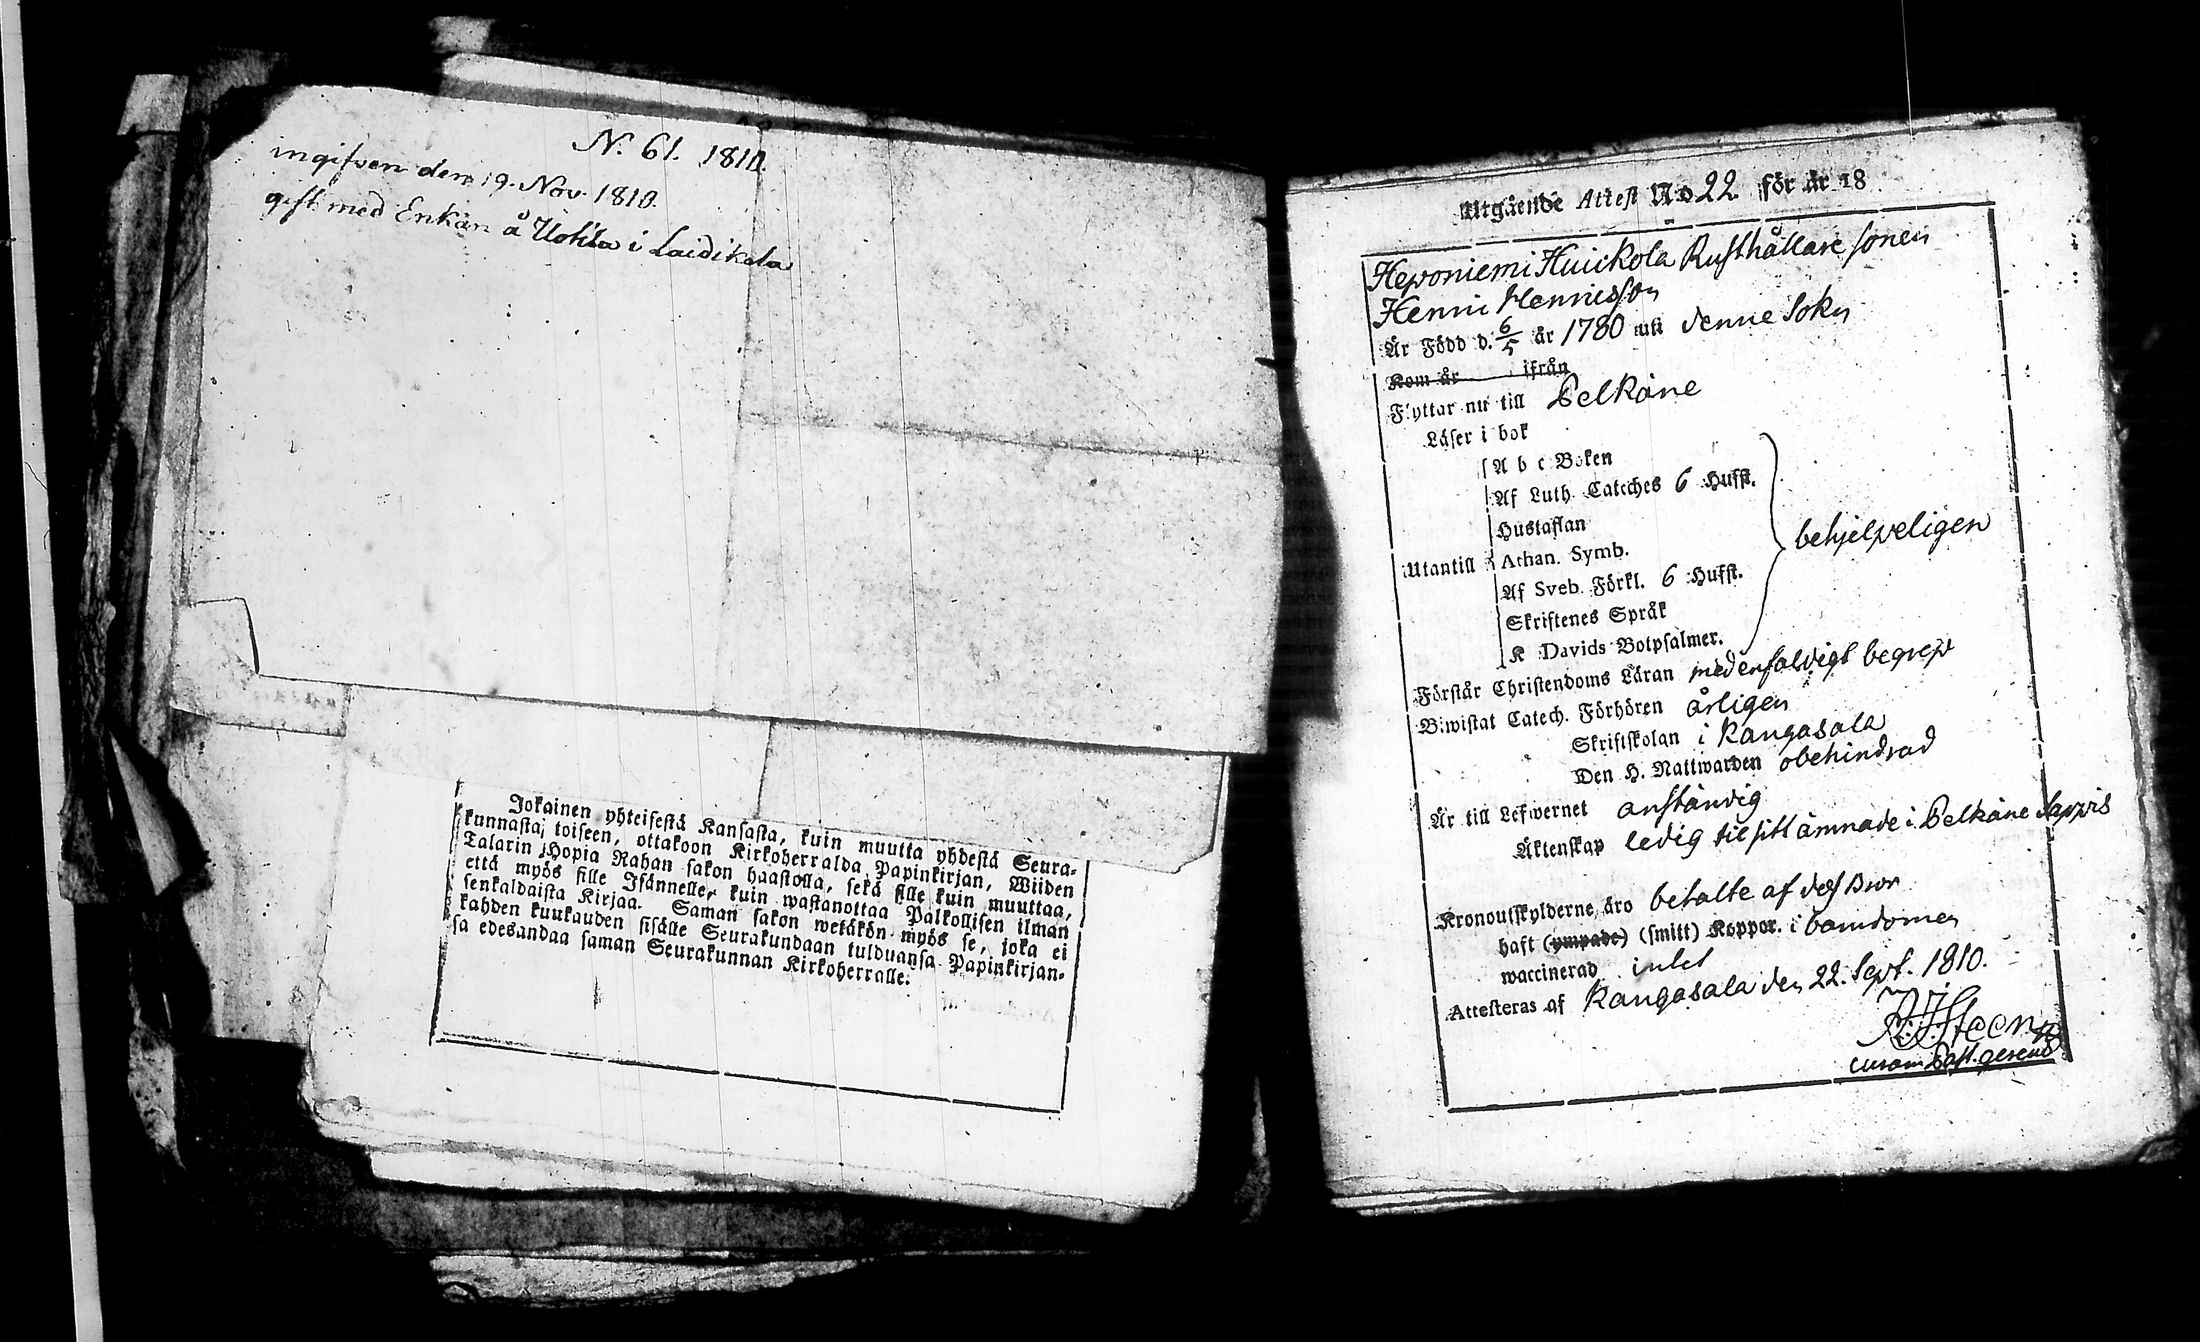 N. 61. 1810.
ingifven den 19. Nov. 1810.
gift med Enkan å Uotila i Laidikala
Jokainen yhteisestä Kansasta, kuin muutta yhdestä Seura-
kunnasta toiseen, ottakoon Kirkoherralda Papinkirjan, Wiiden
Talarin Hopia Rahan sakon haastolla, sekä sille kuin muuttaa,
että myös sille Isännelle, kuin wastanottaa Palkollisen ilman
senkaldaista Kirjaa. Saman sakon wetäkön myös se, joka ei
kahden kuukauden sisälle Seurakundaan tulduansa Papinkirjan-
sa edesandaa saman Seurakunnan Kirkoherralle.
Utgående Attest No 22 för år 18
Heponiemi Huickola Rusthållare sonen
Henric Henricsson
Är Född d. 6/5 år 1780 uti denne Sokn
Kom år ifrån
Flyttar nu till Pelkäne
Läser i bok
A b c Boken
Af Luth. Cateches 6 Hufst.
Hustaflan
Utantill Athan. Symb. behjelpeligen
Af Sveb. Förkl. 6 Hufst.
Skriftenes Språk
K Davids Botpsalmer.
Förstår Christendoms Läran med enfaldigt begrep
Biwistat Catech. Förhören årligen
Skriftskolan i Kangasala
Den H. Nattwarden obehindrad
Är till Lefwernet anständig
Äktenskap ledig til sitt ämnade i Pelkäne
Kronoutskylderne äro betalte af des Bror
haft (ympade) (smitt) Koppor. i barndomen
waccinerad intet
Attesteras af Kangasala den 22. Sept. 1810.
curam Past. gerens